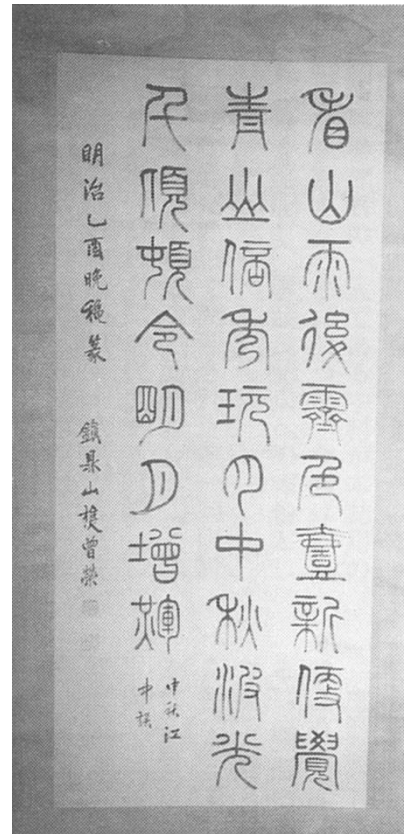 看山雨後霽色壹新便覺
青山倍秀玩月中秋波光
千頃頓令明月增輝
中秋江
中誤
明治乙酉晚穐篆 鎮鼎山樵曾榮